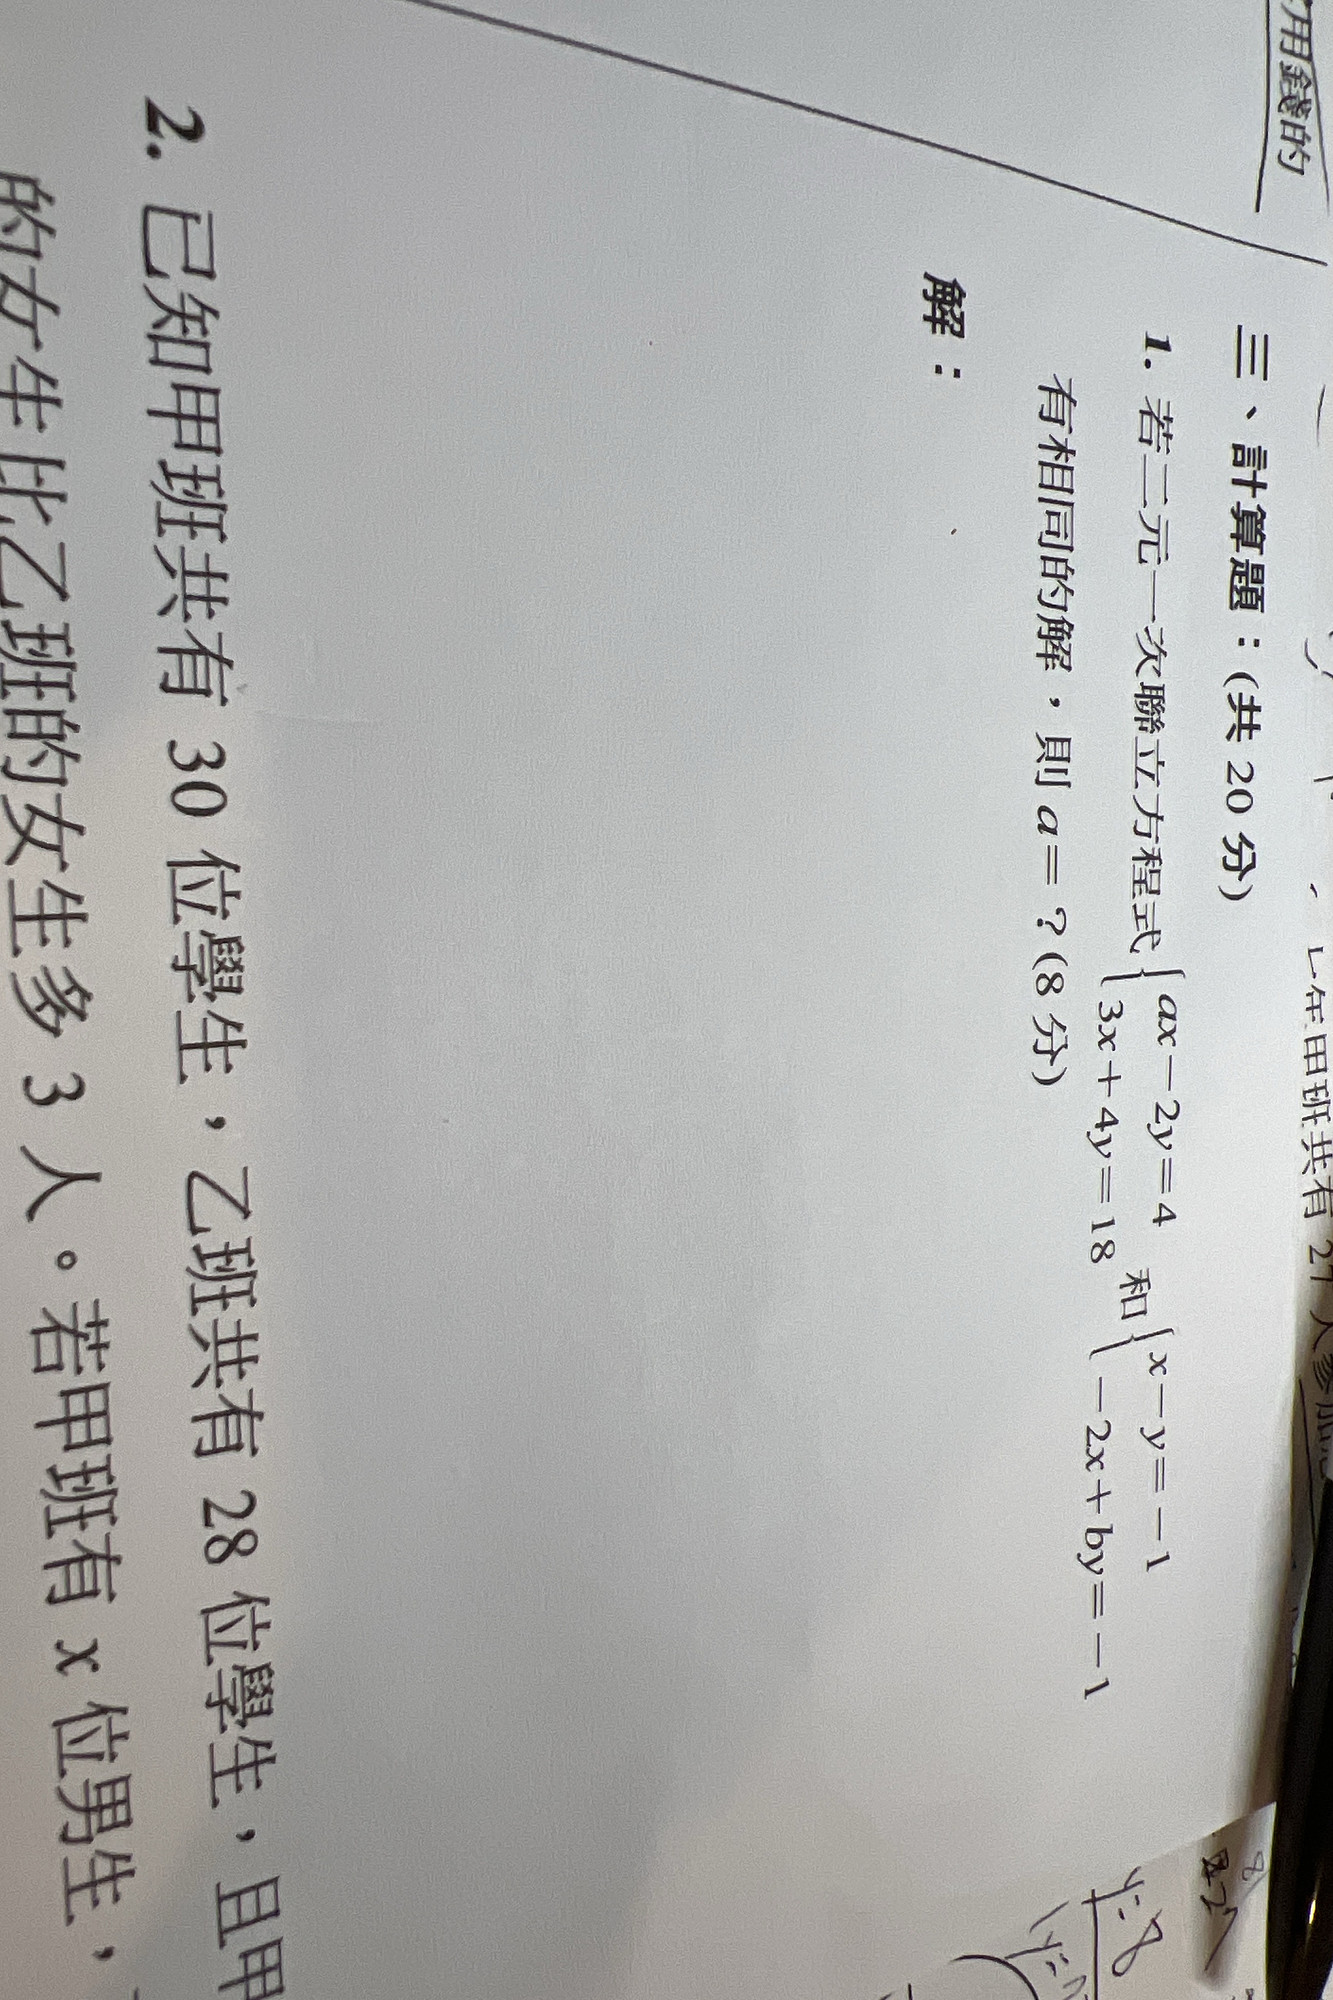 用錢的
七年甲班共有 27 人參加
三、計算題：(共 20 分)
1. 若二元一次聯立方程式 { ax－2y＝4 和 { x－y＝－1
3x＋4y＝18 －2x＋by＝－1
有相同的解，則 a＝？(8 分)
解：
2. 已知甲班共有 30 位學生，乙班共有 28 位學生，且甲
的女生比乙班的女生多 3 人。若甲班有 x 位男生，
y=8